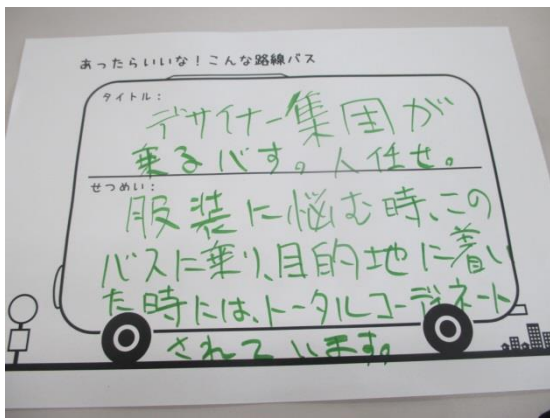 あったらいいな！こんな路線バス
タイトル：
デサイナー集団が
乗るバす。人任せ。
せつめい：
服装に悩む時、この
バスに乗り、目的地に着い
た時には、トータルコーディネート
されています。